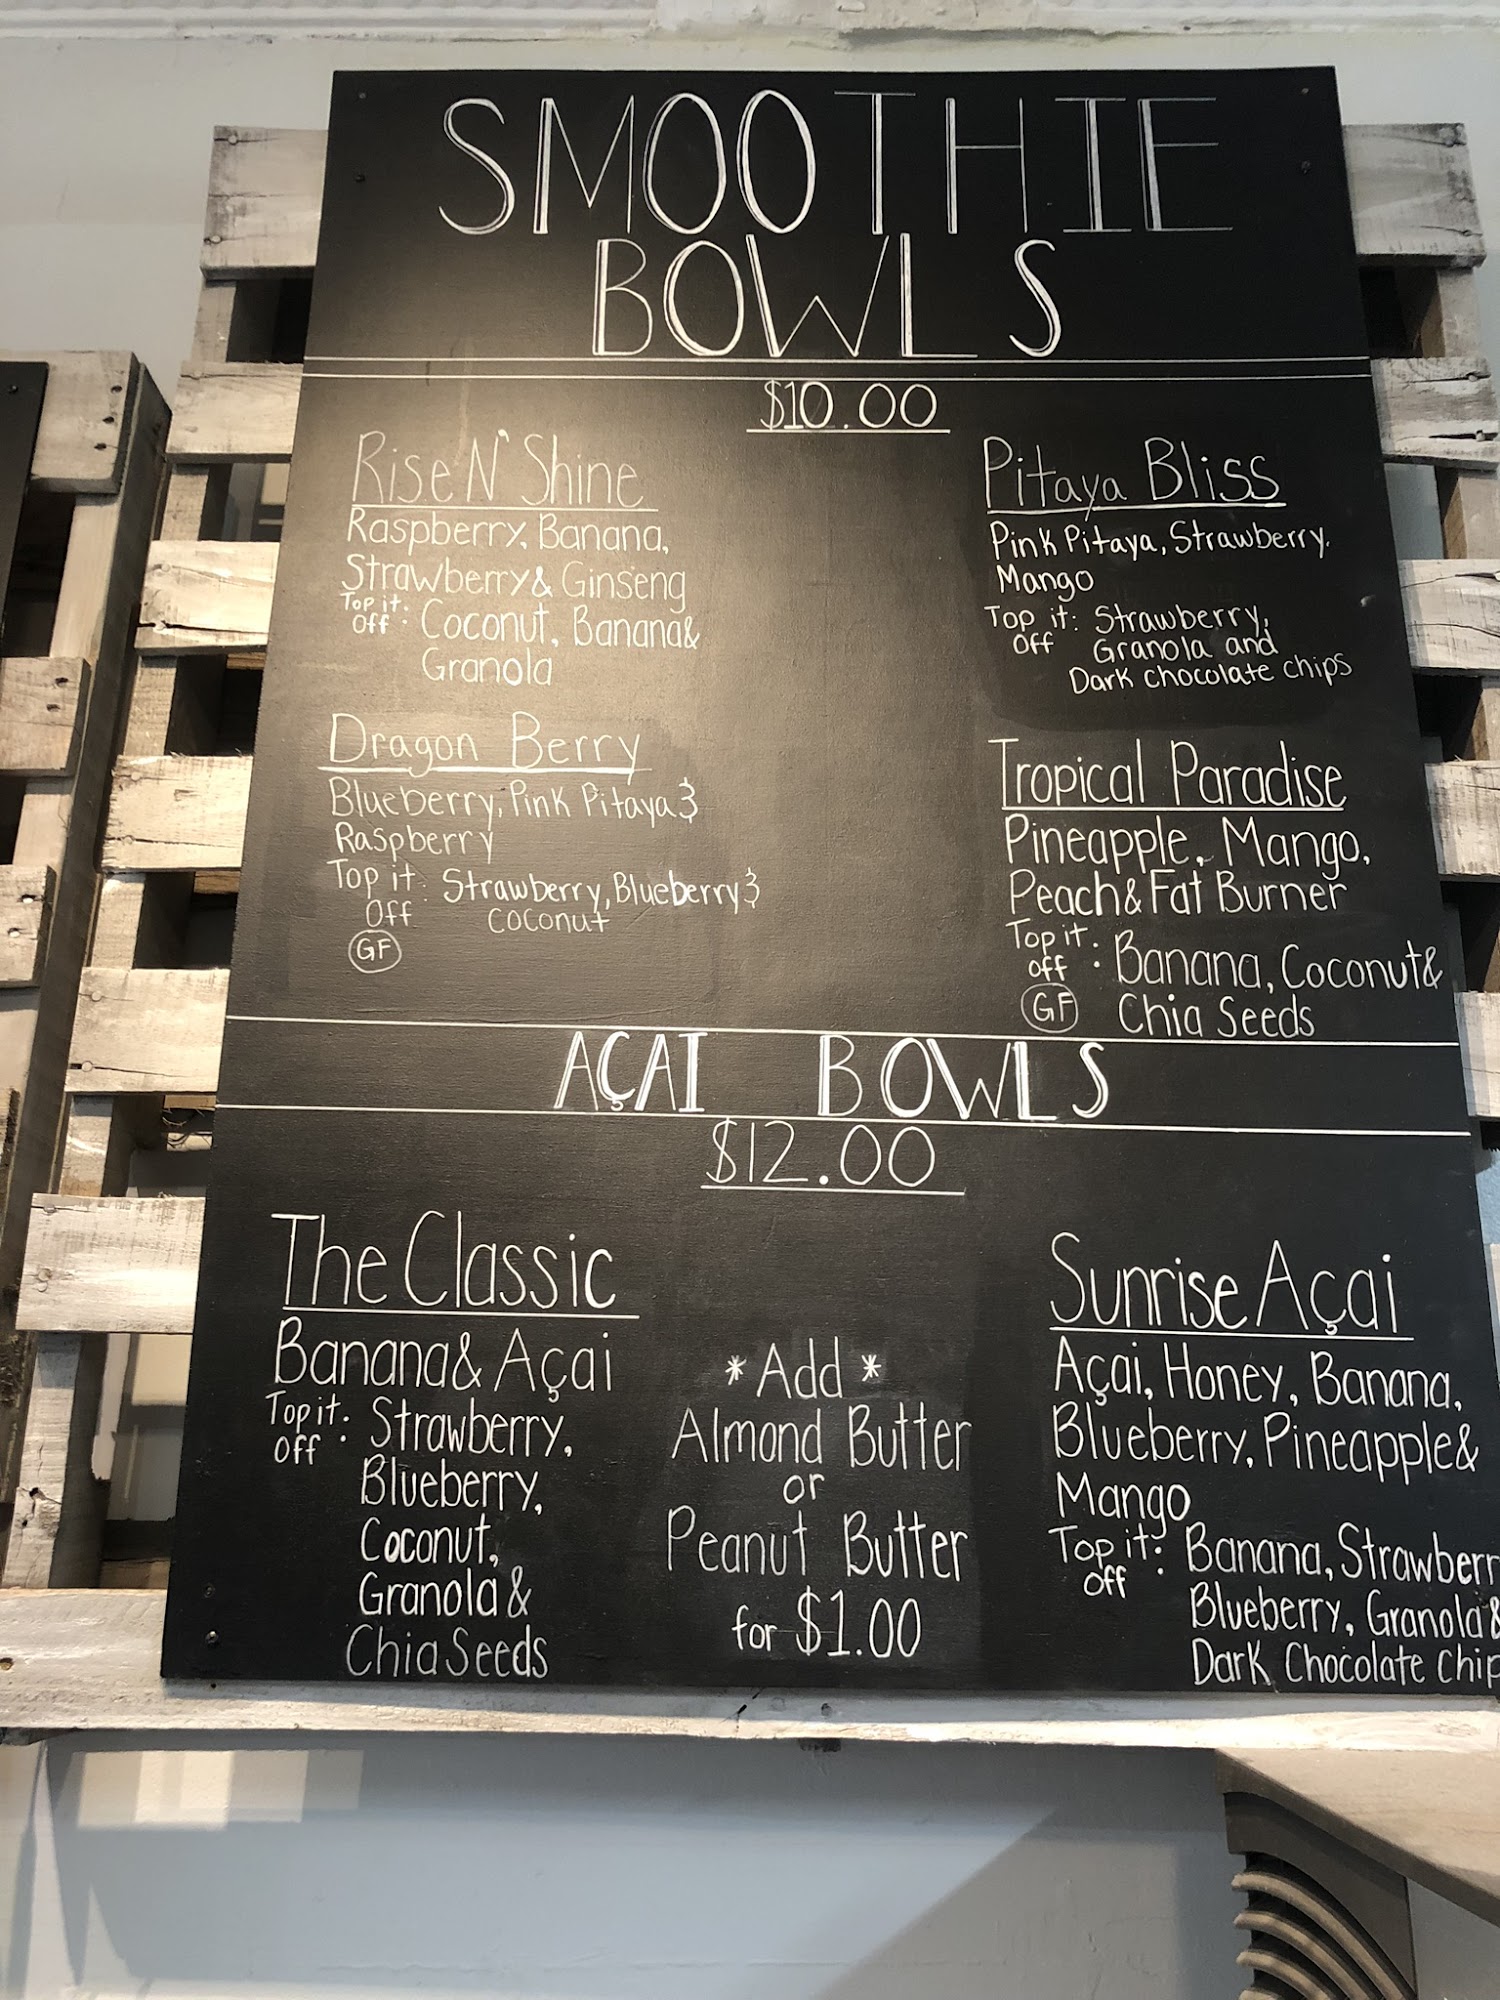 SMOOTHIE
BOWLS
$10.00
Rise N' Shine
Raspberry, Banana,
Strawberry & Ginseng
Top it: Off Coconut, Banana &
Granola
Pitaya Bliss
Pink Pitaya, Strawberry,
Mango
Top it: Strawberry,
Off Granola and
Dark chocolate chips
Dragon Berry
Blueberry, Pink Pitaya &
Raspberry
Top it: Strawberry, Blueberry &
Off coconut
GF
Tropical Paradise
Pineapple, Mango,
Peach & Fat Burner
Top it: Off Banana, Coconut &
GF Chia Seeds
AÇAI BOWLS
$12.00
The Classic
Banana & Açai
Top it: Off Strawberry,
Blueberry,
Coconut,
Granola &
Chia Seeds
*Add*
Almond Butter
or
Peanut Butter
for $1.00
Sunrise Açai
Açai, Honey, Banana,
Blueberry, Pineapple &
Mango
Top it: Off Banana, Strawberr
Blueberry, Granola &
Dark Chocolate Chip